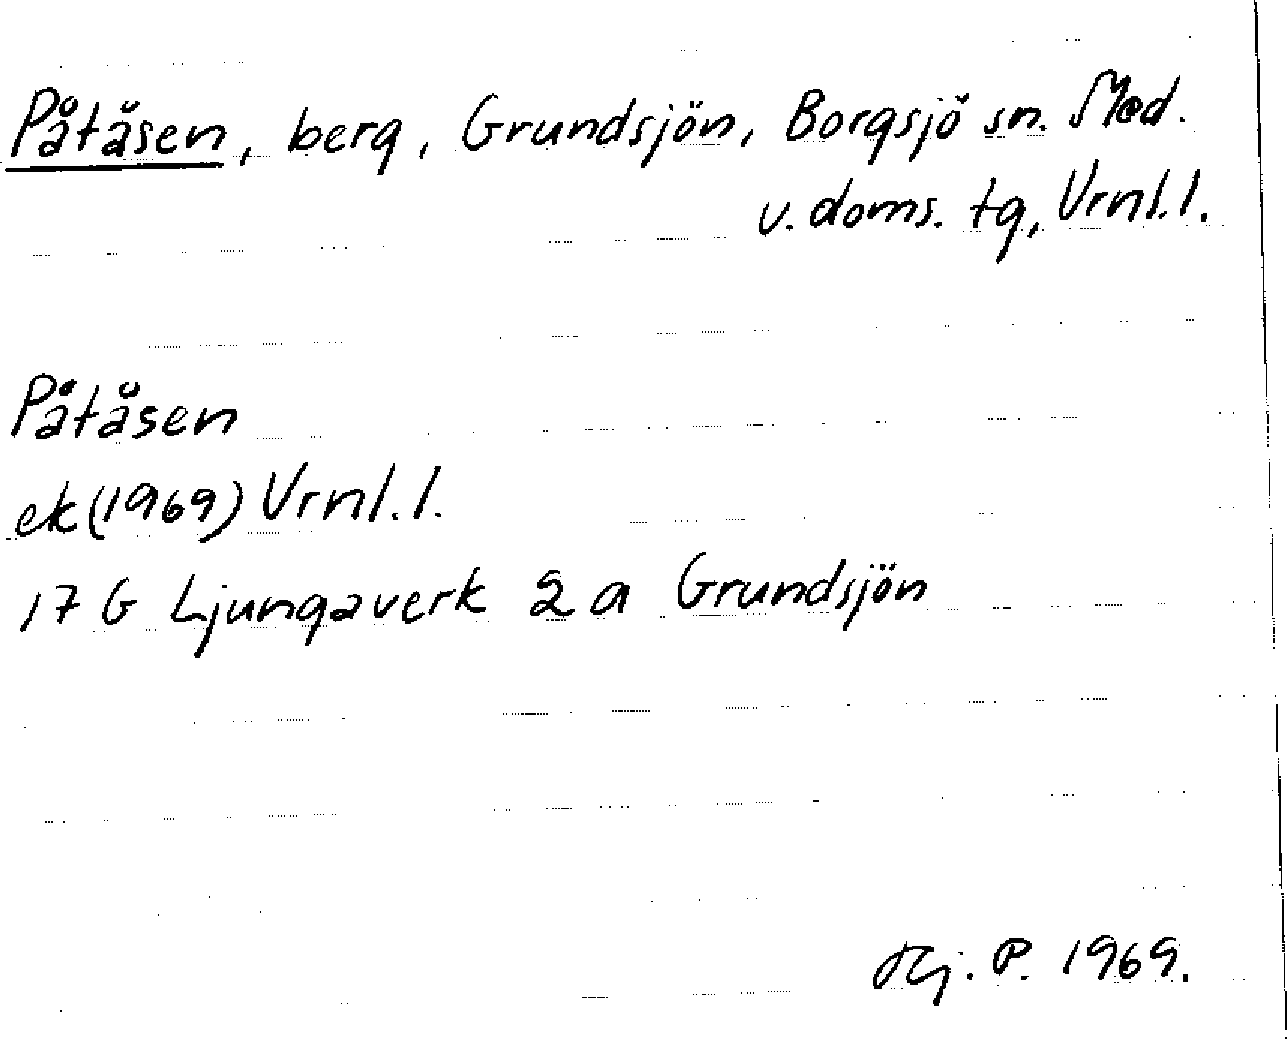 Påtåsen, berg, Grundsjön, Borgsjö sn. Med.
v. doms. tg, Vrnl. l.
Påtåsen
ek (1969) Vrnl. l.
17 G Ljungaverk 2 a Grundsjön
Hj. P. 1969.